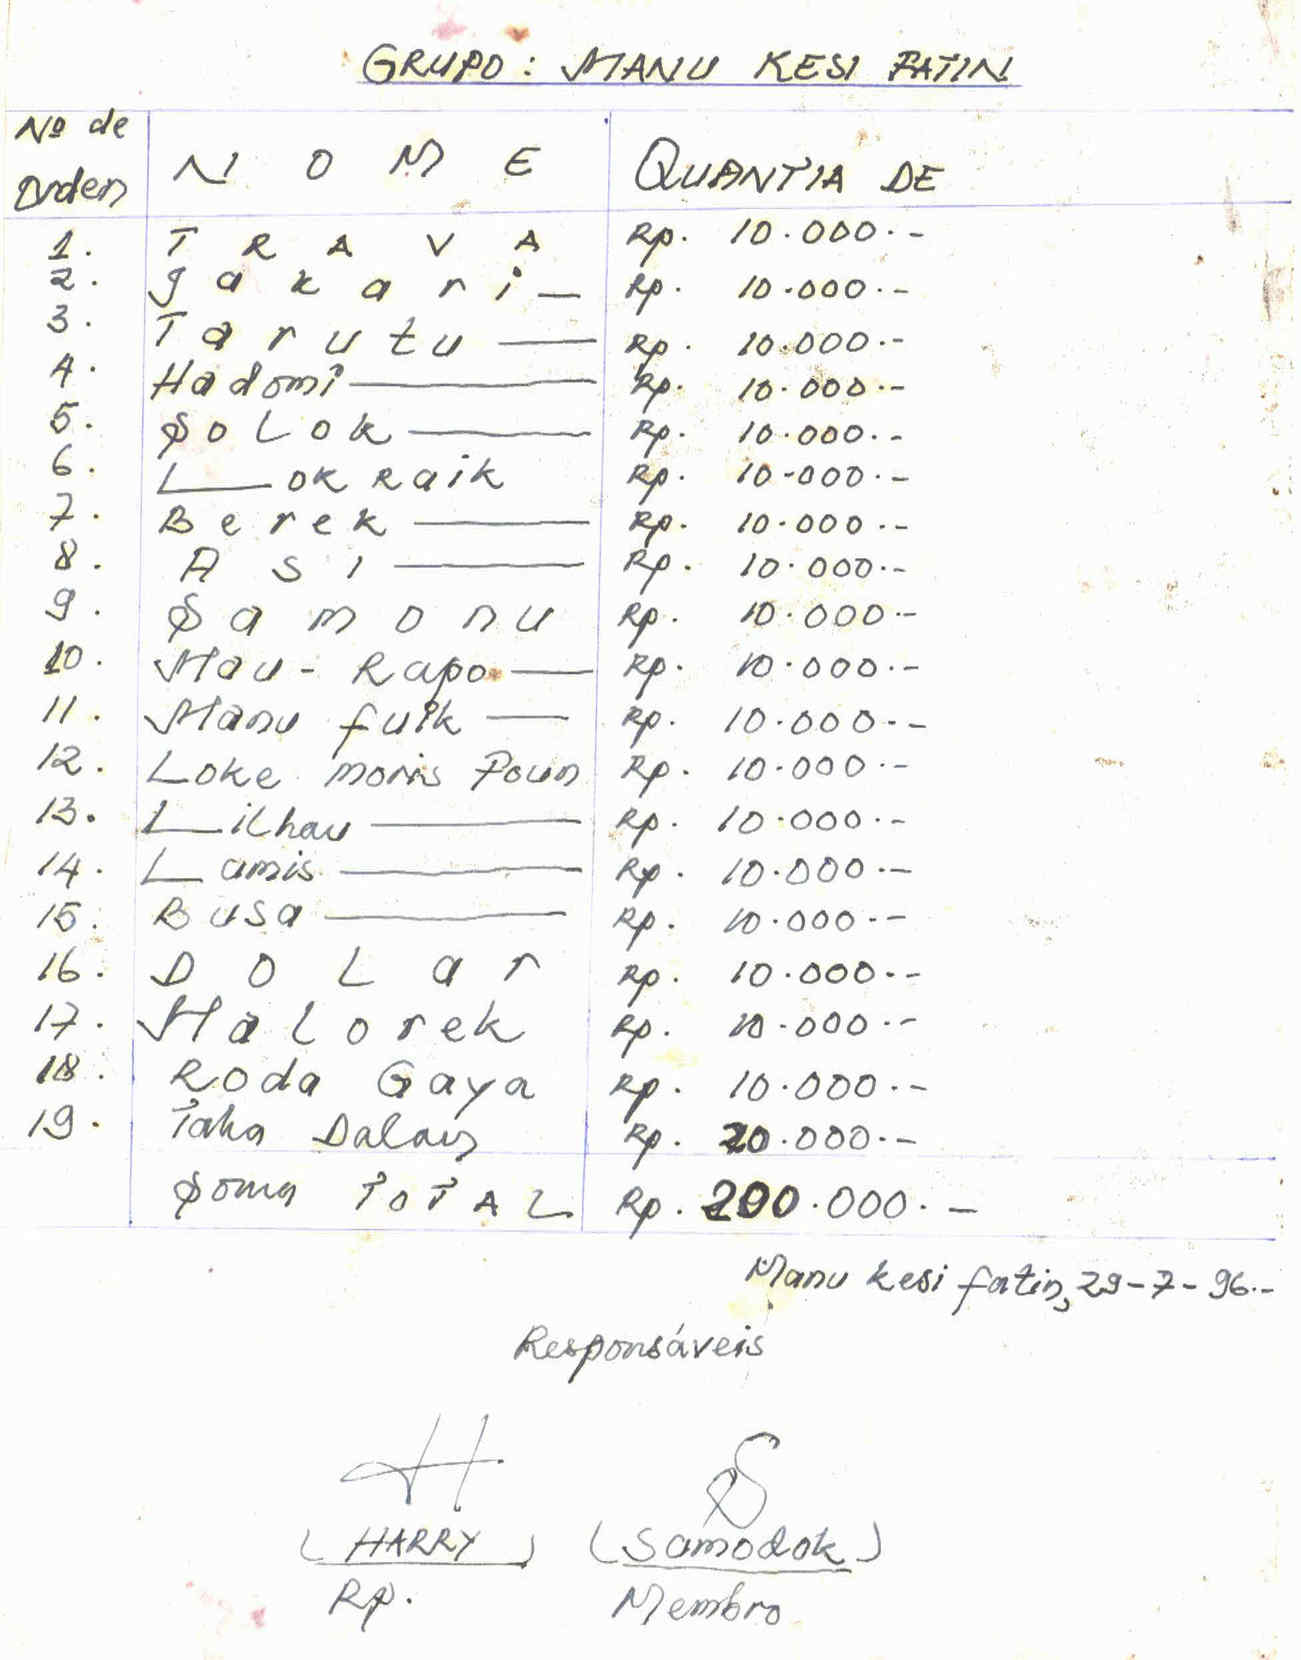 GRUPO: MANU KESI FATIN
Nº de Orden NOME QUANTIA DE
1. TRAVA Rp. 10.000.-
2. gakari — Rp. 10.000.-
3. Tarutu — Rp. 10.000.-
4. Hadomi — Rp. 10.000.-
5. SOLOK — Rp. 10.000.-
6. L—OK RAIK Rp. 10.000.-
7. Berek — Rp. 10.000.-
8. ASI — Rp. 10.000.-
9. Samonu Rp. 10.000.-
10. Mau-Rapo — Rp. 10.000.-
11. Manu fuik — Rp. 10.000.-
12. Loke moris Foun Rp. 10.000.-
13. Lilhau — Rp. 10.000.-
14. Lamis — Rp. 10.000.-
15. Busa — Rp. 10.000.-
16. DOLar Rp. 10.000.-
17. Halorek Rp. 10.000.-
18. Roda Gaya Rp. 10.000.-
19. Taha Dalan Rp. 20.000.-
Soma TOTAL Rp. 200.000.-
Manu kesi fatin, 29-7-96.-
Responsáveis
(HARRY) (Samodok)
Rp. Membro